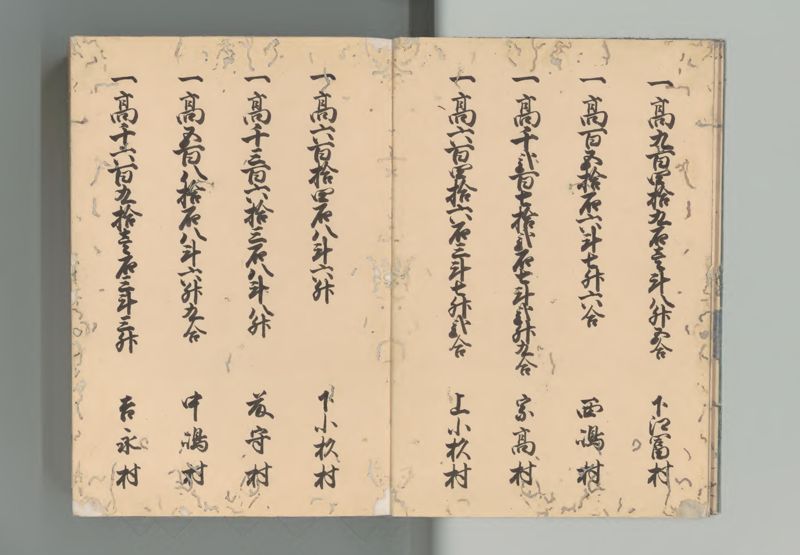 一高九百四拾九石壱斗八升五合 下江富村
一高百五拾石六斗七升六合 西嶋村
一高千弐百七拾弐石七斗弐升九合 家高村
一高六百四拾六石三斗七升弐合 上小杁村
一高六百拾四石八斗六升 下小杁村
一高千三百六拾三石八斗八升 守村
一高五百八拾石八斗六升九合 中嶋村
一高千六百九拾壱石三斗三升 吉永村